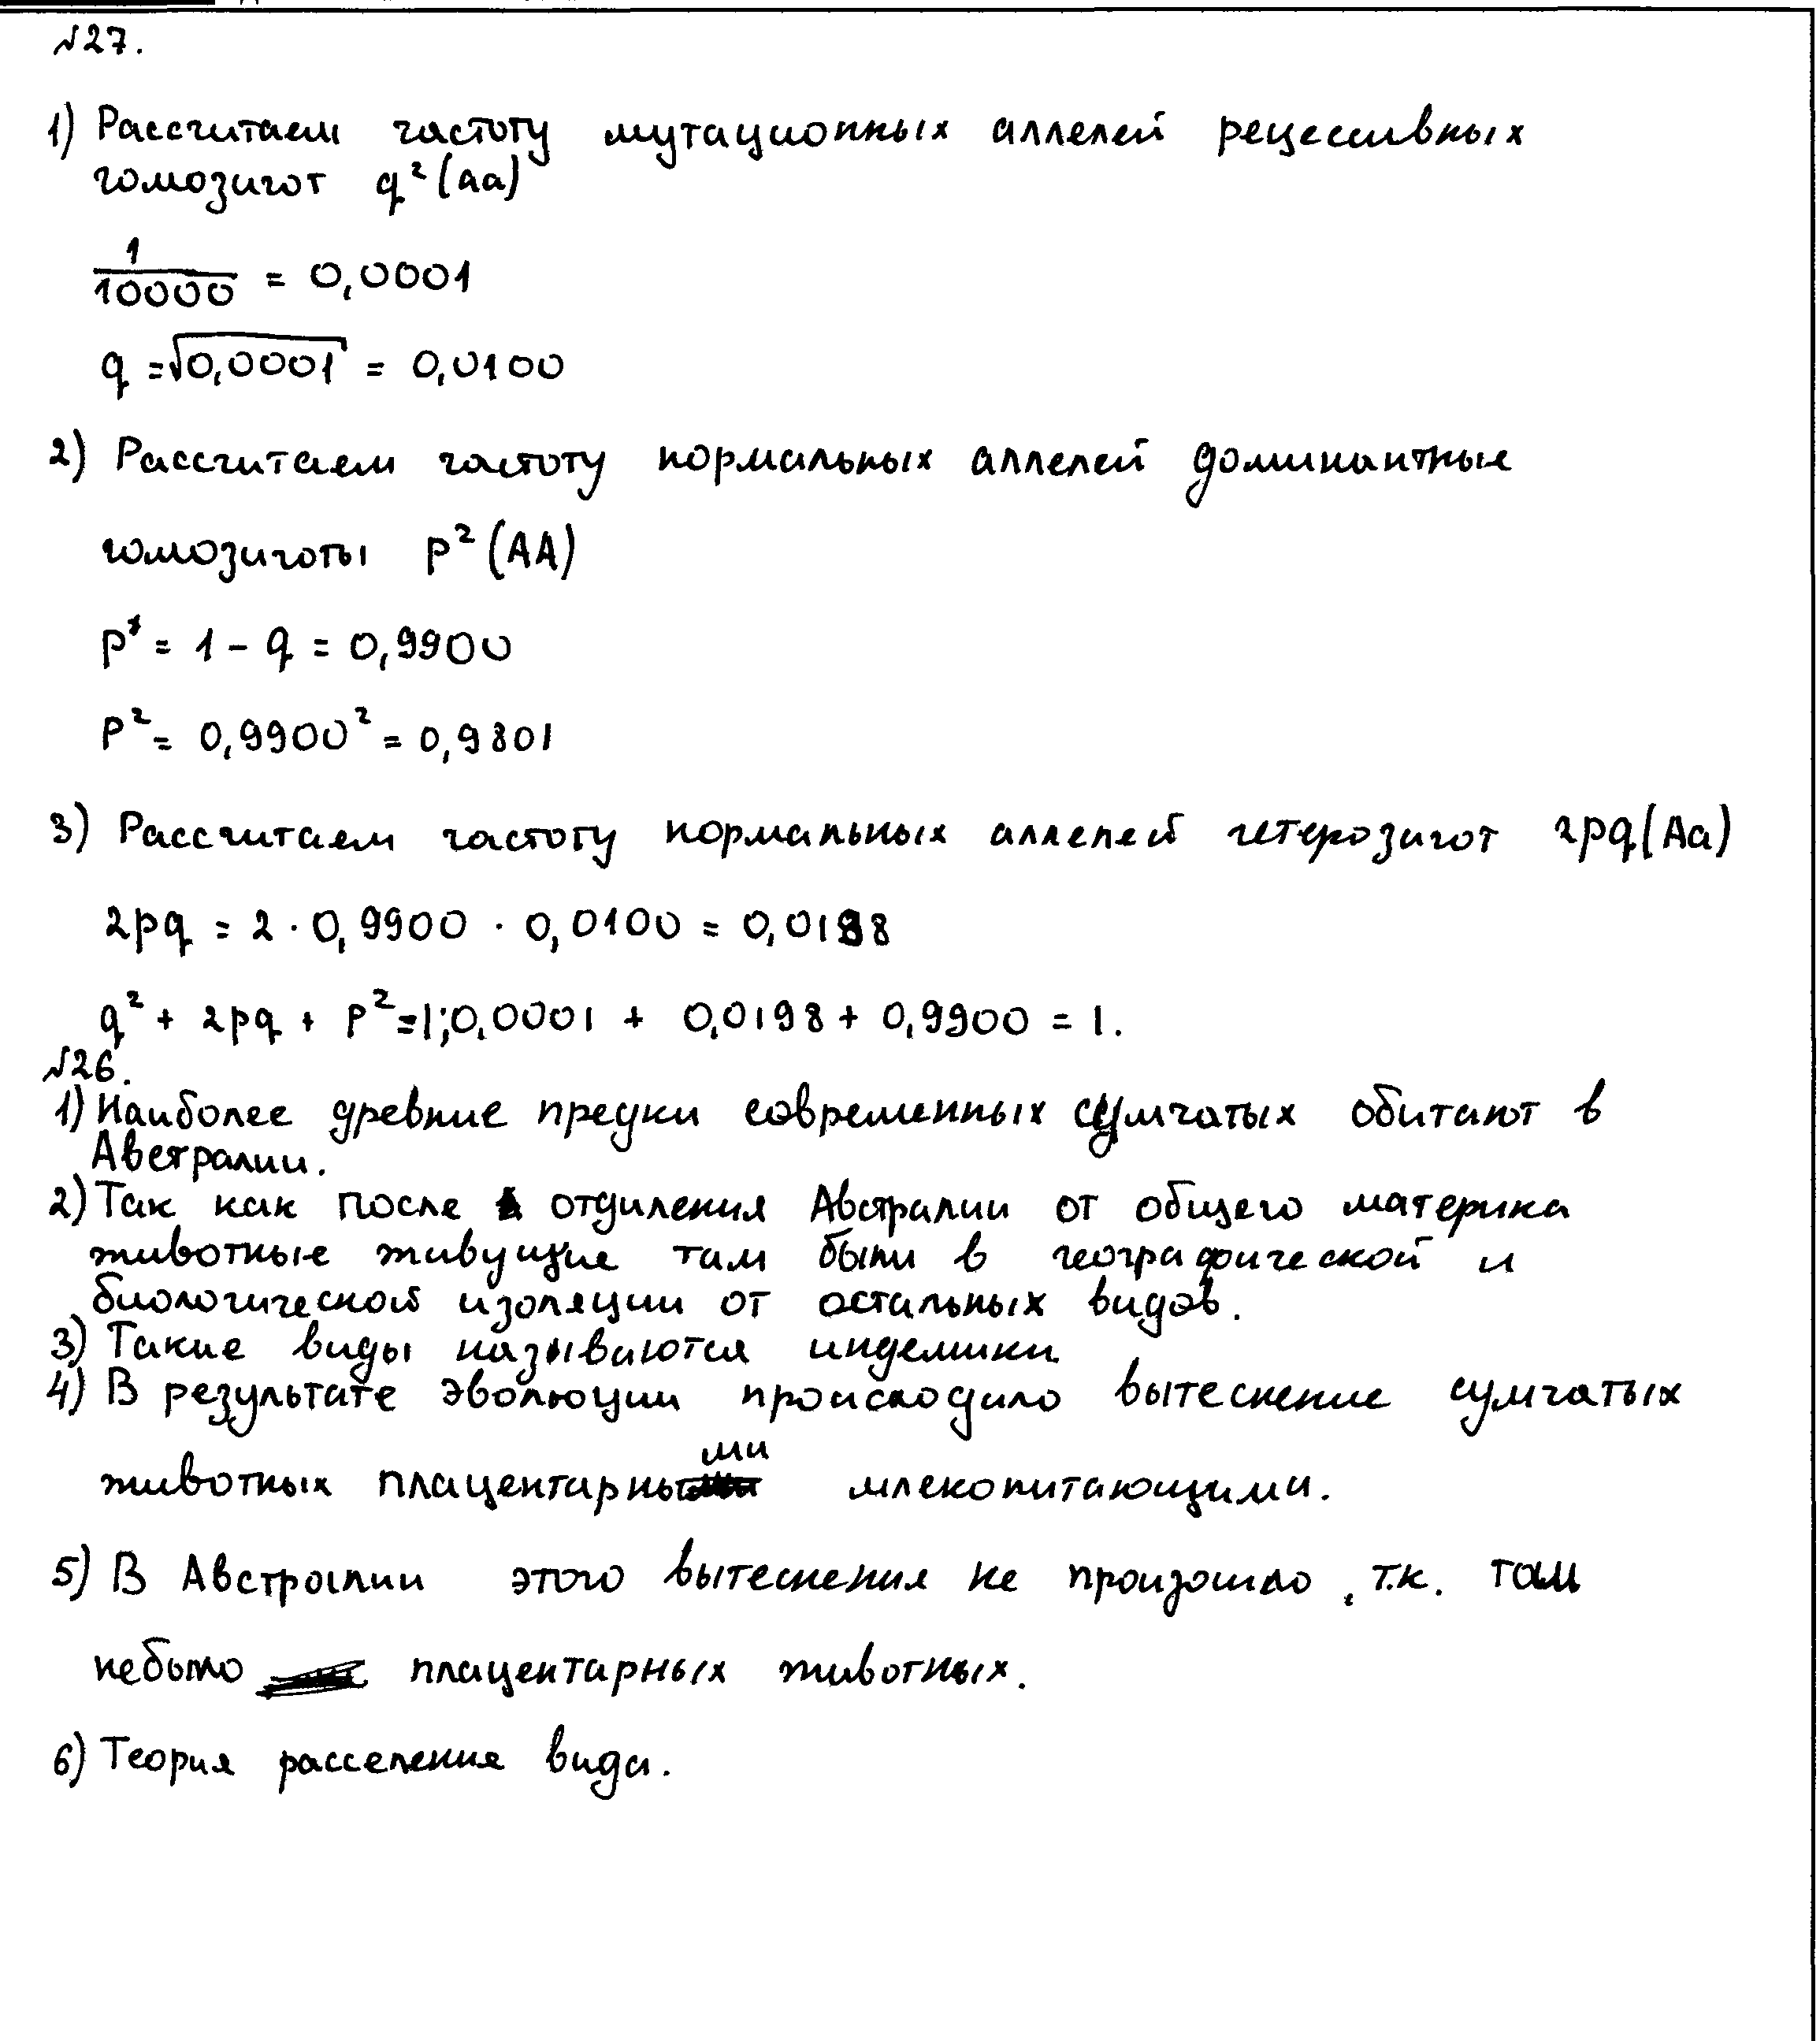 №27.
1) Рассчитаем частоту мутационных аллелей рецессивных
гомозигот q²(аа)
1/10000 = 0,0001
q = √0,0001 = 0,0100
2) Рассчитаем частоту нормальных аллелей доминантные
гомозиготы p²(АА)
p = 1 - q = 0,9900
p² = 0,9900² = 0,9801
3) Рассчитаем частоту нормальных аллелей гетерозигот 2pq(Аа)
2pq = 2 · 0,9900 · 0,0100 = 0,0198
q² + 2pq + p² = 1; 0,0001 + 0,0198 + 0,9900 = 1.
№26.
1) Наиболее древние предки современных сумчатых обитают в
Австралии.
2) Так как после отдиления Австралии от общего материка
животные живущие там были в географической и
биологической изоляции от остальных видов.
3) Такие виды называются индемики
4) В результате эволюции происходило вытеснение сумчатых
животных плацентарными млекопитающими.
5) В Австралии этого вытеснения не произошло, т.к. там
небыло плацентарных животных.
6) Теория расселение вида.